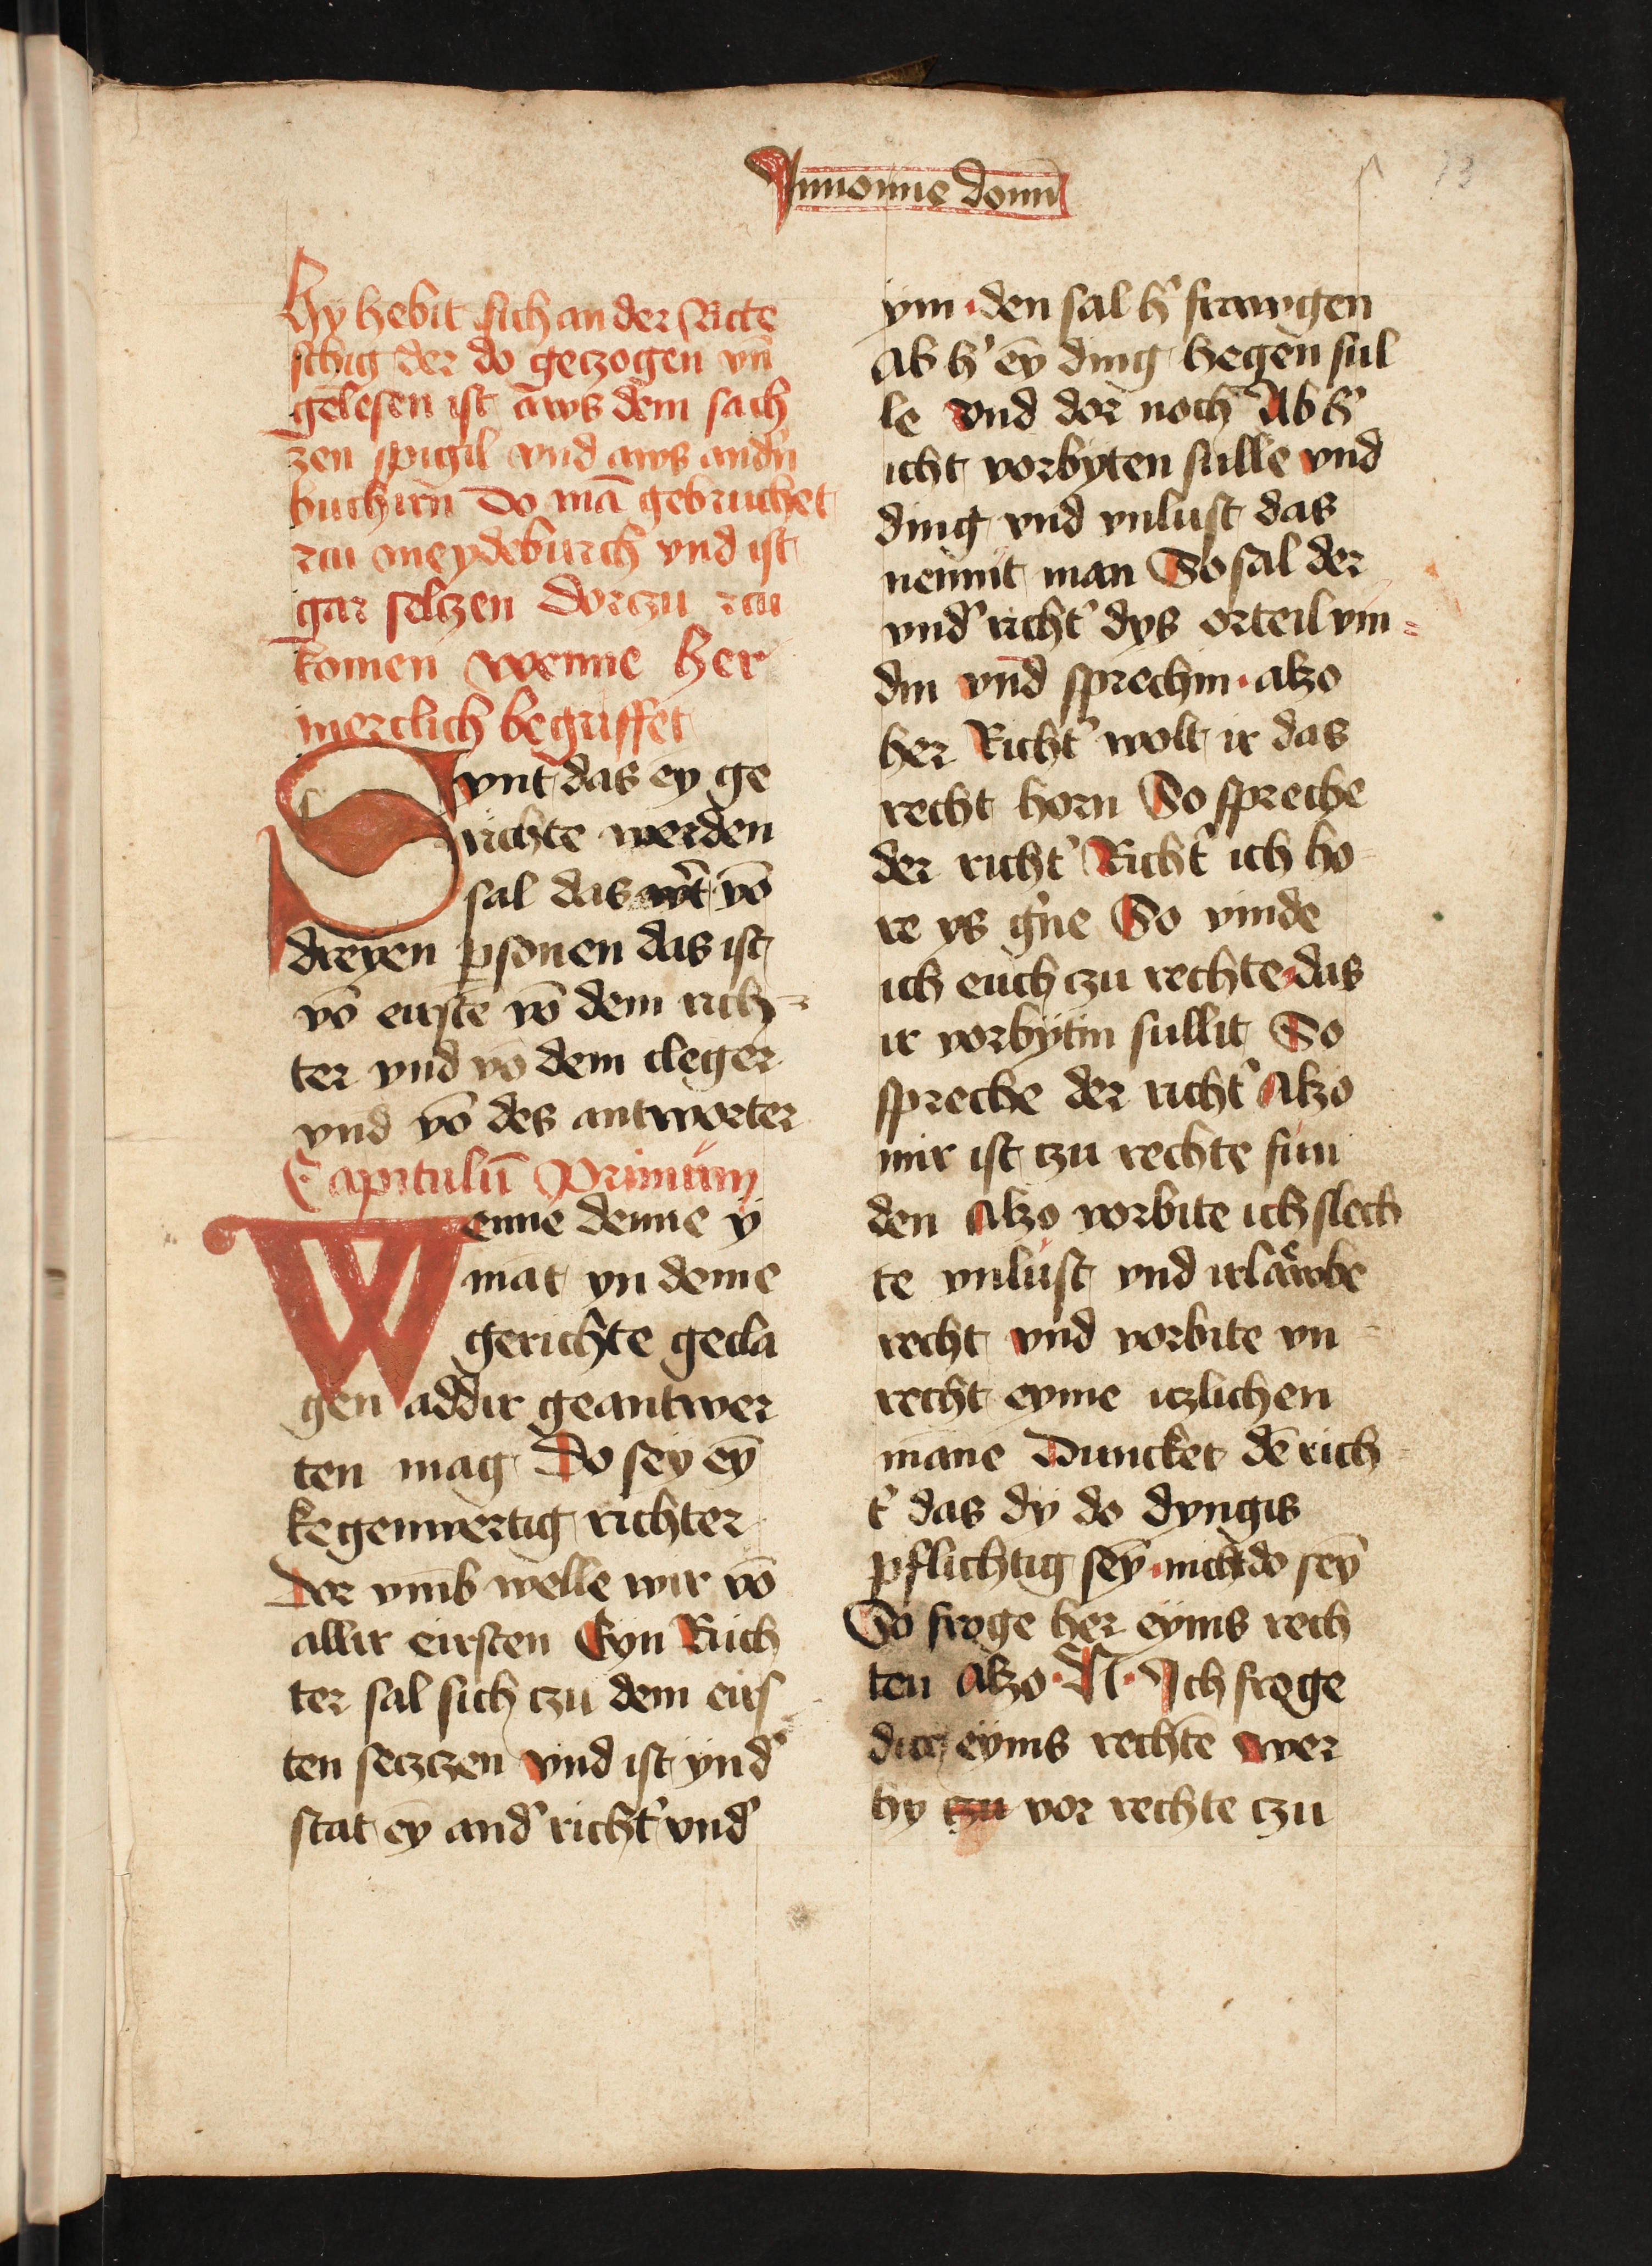 Jnnomine domīn
73
Hy hebit sich an der Richte
stig der do geczogen vn̄
gelesen ist aws dem sach
zen spigil vnd aws andn̓
buchirn do mā gebruchet
czu meydeburch vnd ist
gar selczen dorczu czu
komen wenne her
merclich begriffet
Synt das ey ge
richte werden
sal das wt̓ vō
dreyen ꝑsonen das ist
vō eirste vō dem rich⸗
ter vnd vō dem cleger
vnd vō des antworter
Capitulū Primum
Wenne denne ÿ
māt yn deme
gerichte gecla
gen addir geantwer
ten mag Do seÿ eȳ
kegenwertig richter
Dor vmb welle wir vō
allir eirsten Eyn Rich
ter sal sich czu dem eirs
ten seczczen vnd ist ynd̓
stat eȳ and̓ richt̓ vnd̓
ym · den sal h̓ frawgen
ab h̓ eȳ ding hegen sul
le vnd dor noch Ab h̓
icht vorbyten sulle vnd
ding vnd vnlust das
nennit man So sal der
vnd̓ richt̓ dys orteil vin⸗
din vnd sprechin · alzo
her Richt̓ wolt ir das
recht horn So spreche
der richt̓ Richt̓ ich ho⸗
re ys g̓ne So vinde
ich euch czu rechte das
ir vorbÿtin sullit So
spreche der richt̓ Alzo
mir ist czu rechte fun
den Alzo vorbite ich slech
te vnlust vnd irlawbe
recht vnd vorbite vn⸗
recht eyme iczlichen
manne Duncket dē rich⸗
t̓ das dÿ do dyngis
pflichtig seȳ · nicht do seȳ
So froge her eyns rech
ten Alzo · N · Jch froge
dich eyns rechten wer
hy czu vor rechte czu